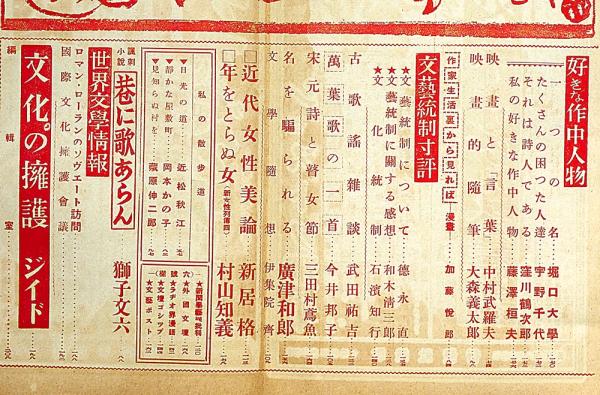 好きな作中人物
一つの名 堀口大學
たくさんの困つた人達 宇野千代
それは詩人である 窪川鶴次郎
私の好きな作中人物 藤澤桓夫
映畫と「言葉」 中村武羅夫
映畫的隨筆 大森義太郎
作家生活裏から見れば 漫畫 加藤悦郎
文藝統制寸評
★文藝統制について 德永直
★文藝統制に關する感想 和木清三郎
★文化統制 石濱知行
古歌謠雜談 武田祐吉
萬葉歌の一首 今井邦子
宋元詩と瞽女節 三田村鳶魚
名を騙られる 廣津和郎
文學隨想 伊集院齊
□近代女性美論 新居格
□年をとらぬ女 (新女性列傳四) 村山知義
私の散歩道
日光の道 近松秋江
靜かな屋敷町 岡本かの子
見知らぬ村を 蔵原伸二郎
六號欄
★新聞學藝欄批判
★外國文壇
★ラヂオ界漫談
★文壇ゴシップ
★文藝ポスト
諷刺小説 巷に歌あらん 獅子文六
世界文學情報
ロマン・ローランのソヴエート訪問
國際文化擁護會議
文化の擁護 ジイド
編輯室